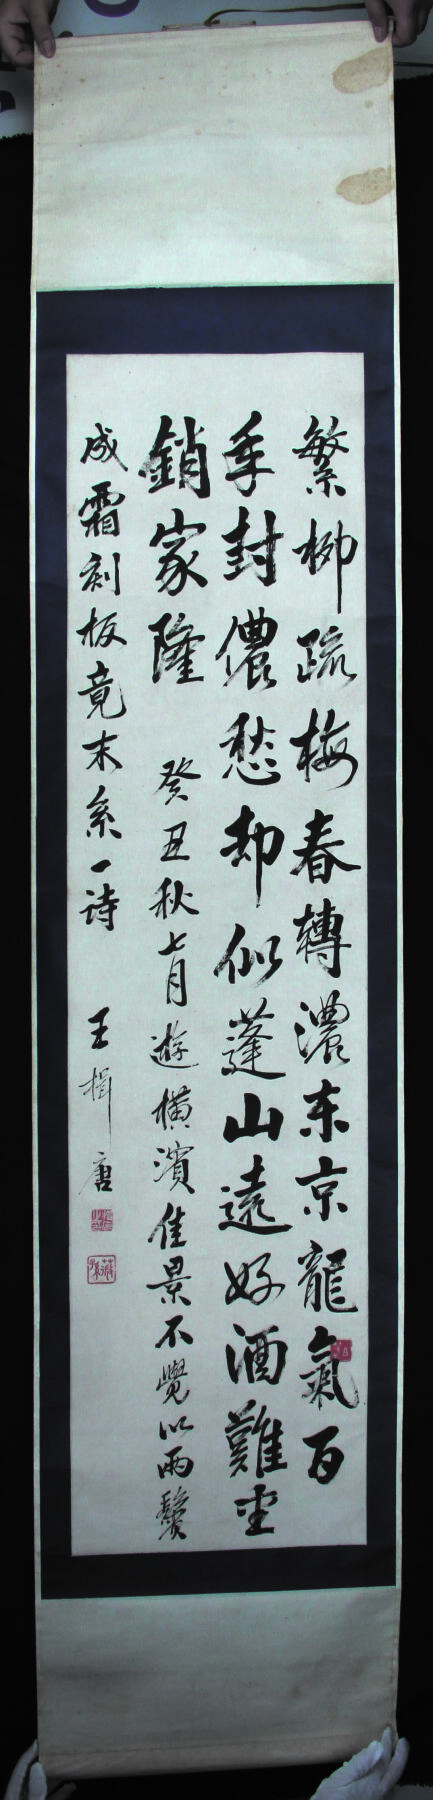 繁柳疏梅春轉濃東京龍氣百
年封儂愁却似蓬山遠好酒難
銷家隆 癸丑秋七月遊橫濱佳景不覺以兩鬢
成霜刻板竟末系一诗 王揖唐